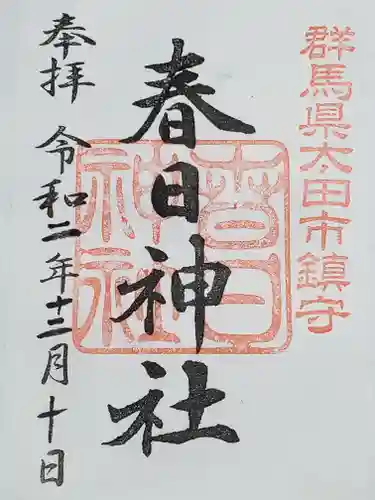 群馬県太田市鎮守
春日神社
春日神社
奉拝 令和二年十二月十日